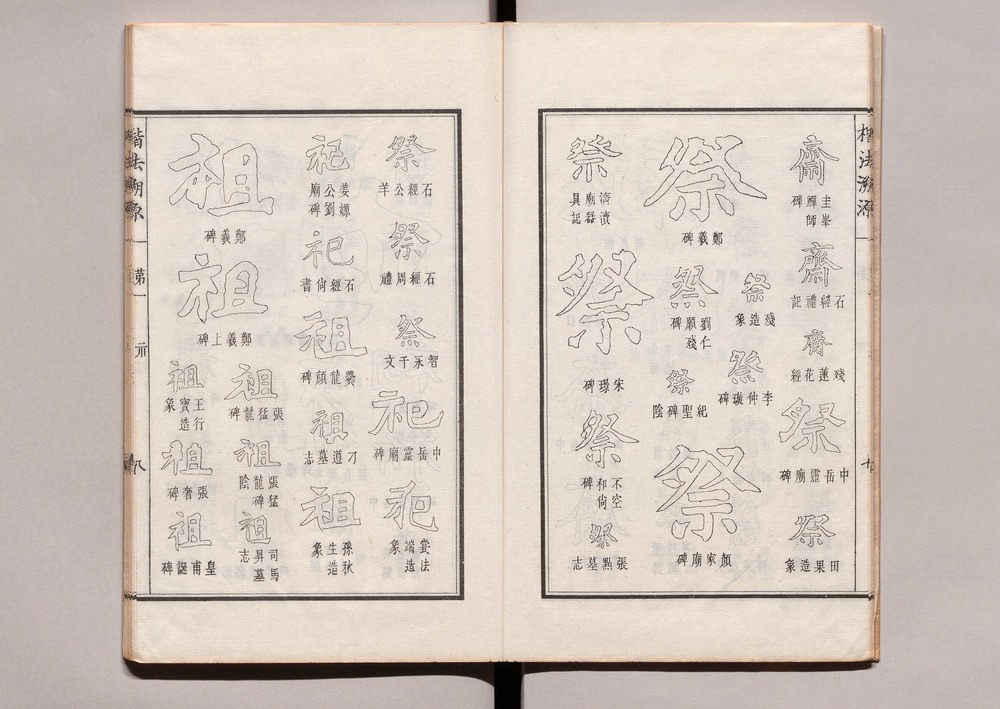 楷法溯源
齋
圭峯禪師碑
齋
石經禮記
齋
殘蓮花經
祭
中岳靈廟碑
祭
田果造象
祭
鄭羲碑
祭
殘造象
祭
劉仁願殘碑
祭
李仲璇碑
祭
紀聖碑陰
祭
顏家廟碑
祭
濟瀆廟器具記
祭
宋璟碑
祭
不空和尚碑
祭
張墓志
祭
石經公羊
祭
石經周禮
祭
智永千文
祀
中岳靈廟碑
祀
法端造象
祀
姜嫄公劉廟碑
祀
石經尚書
祖
爨龍顏碑
祖
刁遵墓志
祖
孫秋生造象
祖
鄭羲碑
祖
鄭羲上碑
祖
張猛龍碑
祖
張猛龍碑陰
祖
司馬昇墓志
祖
王行寶造象
祖
張奢碑
祖
皇甫誕碑
楷法溯源
第一
示
八